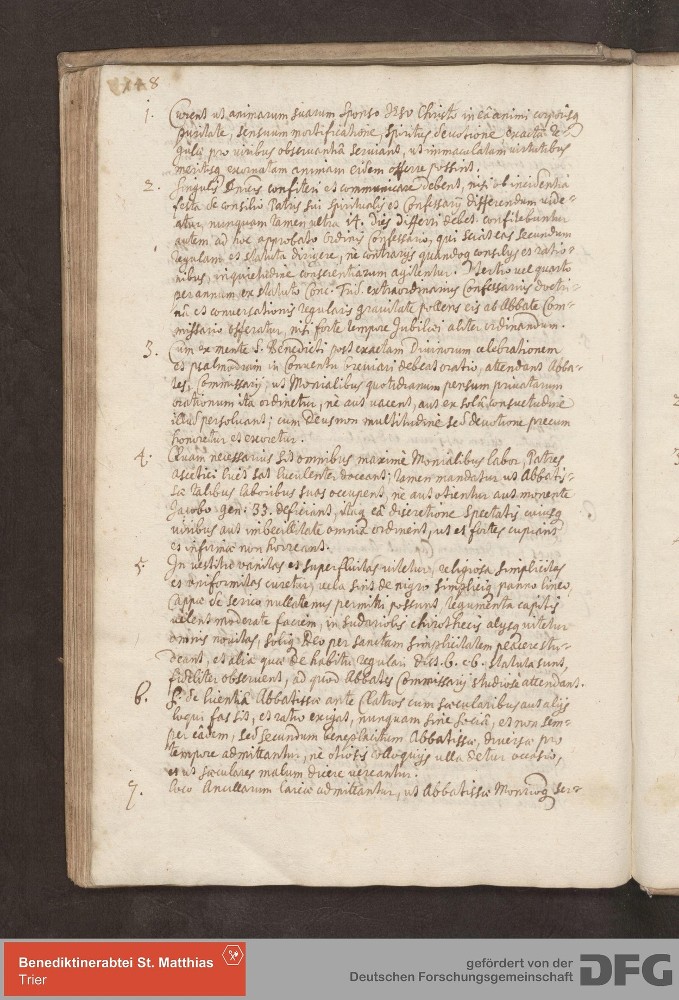 148
1. Curent ut animarum suarum Sponso Jesu Christo in eâ animi corporisq
puritate, sensuum mortificatione, spiritûs devotione exactâ Re=
gulæ pro viribus observantiâ serviant, ut immaculatam virtutibus
meritisq exornatam animam eidem offerre possint.
2. Singulis Dnicis confiteri et communicare debent, nisi ob incidentia
festa de consilio Patris sui spiritualis et Confessarij differendum vide=
atur, nunquam tamen ultra 14. dies differri debet. confitebuntur
autem ad hoc approbato ordinis Confessario, qui sciat eas secundum
regulam et statuta dirigere, ne contrarijs quandoq consilijs et ratio=
nibus, inquietudine conscientiarum agitentur. Tertio vel quarto
per annum ex statuto Conc. Trid. extraordinarius Confessarius doctri=
nâ et conversationis regularis gravitate pollens eis ab Abbate Com=
missario offeratur, nisi forte tempore Jubilæi aliter ordinandum.
3. Cum ex mente S. Benedicti post exactam Divinorum celebrationem
et psalmodiam in Conventu breviari debeat oratio, attendant Abba=
tes, Commissarij, ut Monialibus quotidianum pensum privatarum
orationum ita ordinetur, ne aut vacent, aut ex solâ consuetudine
illud persolvant; cum Deus non multitudine sed devotione precum
honoretur et exoretur.
4. Quam necessarius sit omnibus maximè Monialibus labor, Patres
ascetici licèt sat luculenter doceant; tamen mandatur ut Abbatis=
sæ talibus laboribus suas occupent, ne aut otientur aut monente
Jacobo gen: 33. deficiant, itaq eâ discretione spectatis cuiusq
viribus aut imbecillitate omnia ordinent, ut et fortes cupiant
et infirmæ non horreant.
5. In vestitu vanitas et superfluitas vitetur, religiosa simplicitas
et uniformitas curetur, vela sint de nigro simpliciq panno lineo,
Cappæ de serico nullatenus permitti possunt tegumenta capitis
velent moderate faciem, in sudariolis chirothecis alijsq vitetur
omnis novitas, soliq Deo per sanctam simplicitatem placere stu=
deant, et alia quæ de habitu regulari dist. 6. c 6. statuta sunt,
fideliter observent, ad quod Abbates Commissarij studiosè attendant.
6. Si de licentiâ Abbatissæ ante Clatros cum sæcularibus aut alijs
loqui fas sit, et ratio exigat, nunquam sine sociâ, et non sem=
per eâdem, sed secundum beneplacitum Abbatissæ, diversæ pro
tempore admittantur, ne otiosis colloquijs ulla detur occasio,
et ut sæculares malum dicere vereantur.
7. Loco Ancillarum laicæ admittantur, ut Abbatissæ Monitioq ser=
Benediktinerabtei St. Matthias
Trier
gefördert von der
Deutschen Forschungsgemeinschaft
DFG